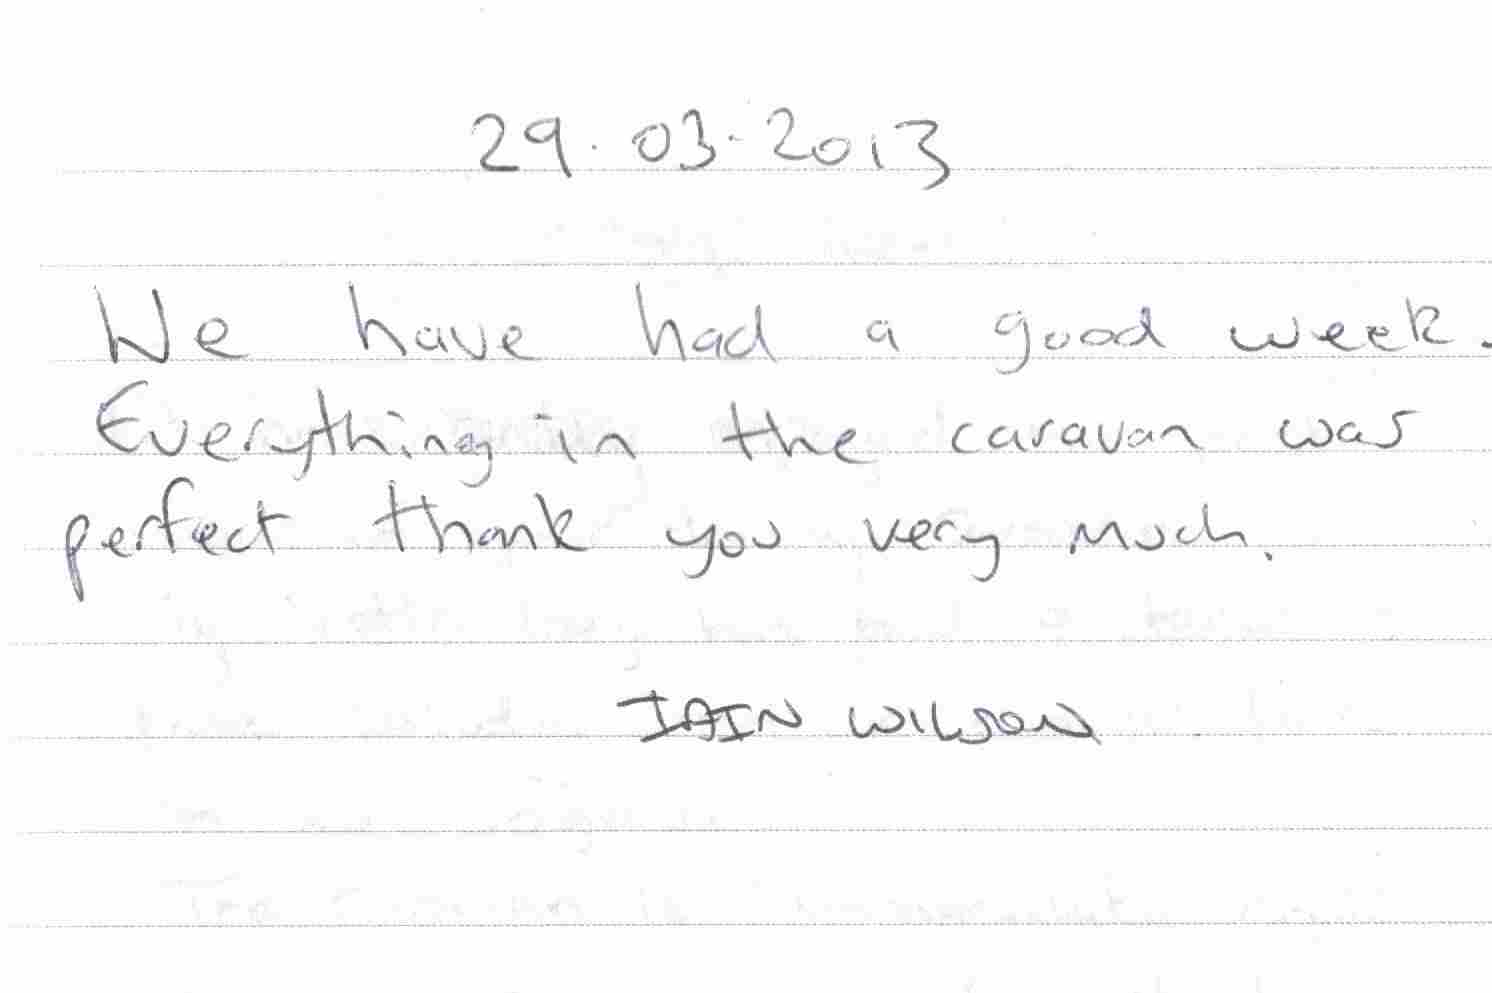 29.03.2013
We have had a good week.
Everything in the caravan was
perfect thank you very much.
IAIN WILSON